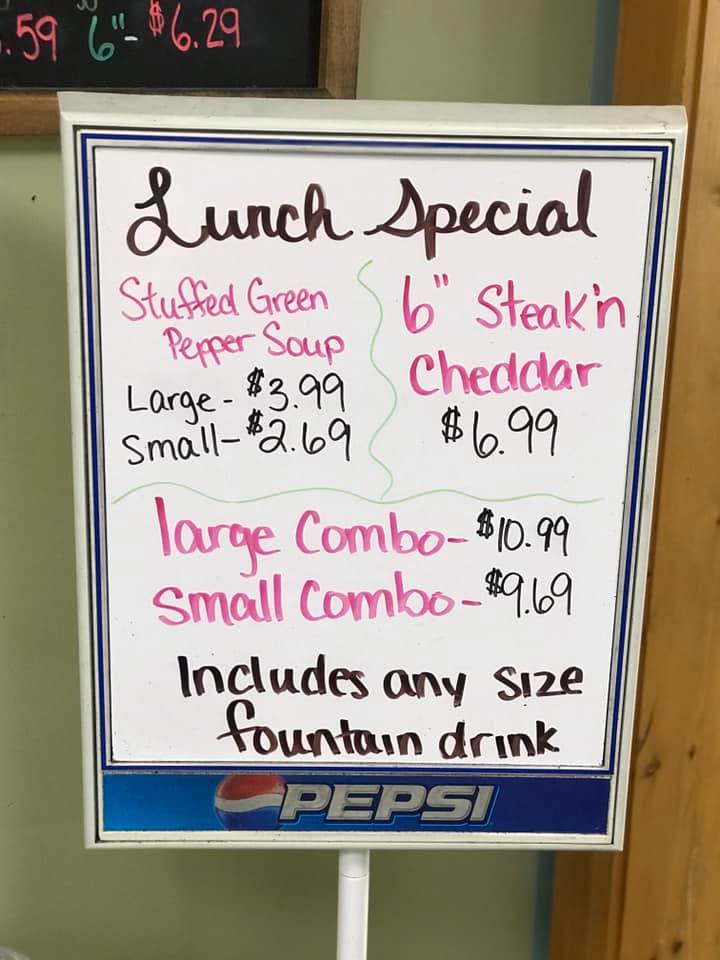 .59 6"- $6.29
Lunch Special
Stuffed Green
Pepper Soup
Large - $3.99
Small - $2.69
6" Steak'n
Cheddar
$6.99
large Combo - $10.99
Small Combo - $9.69
Includes any size
fountain drink
PEPSI